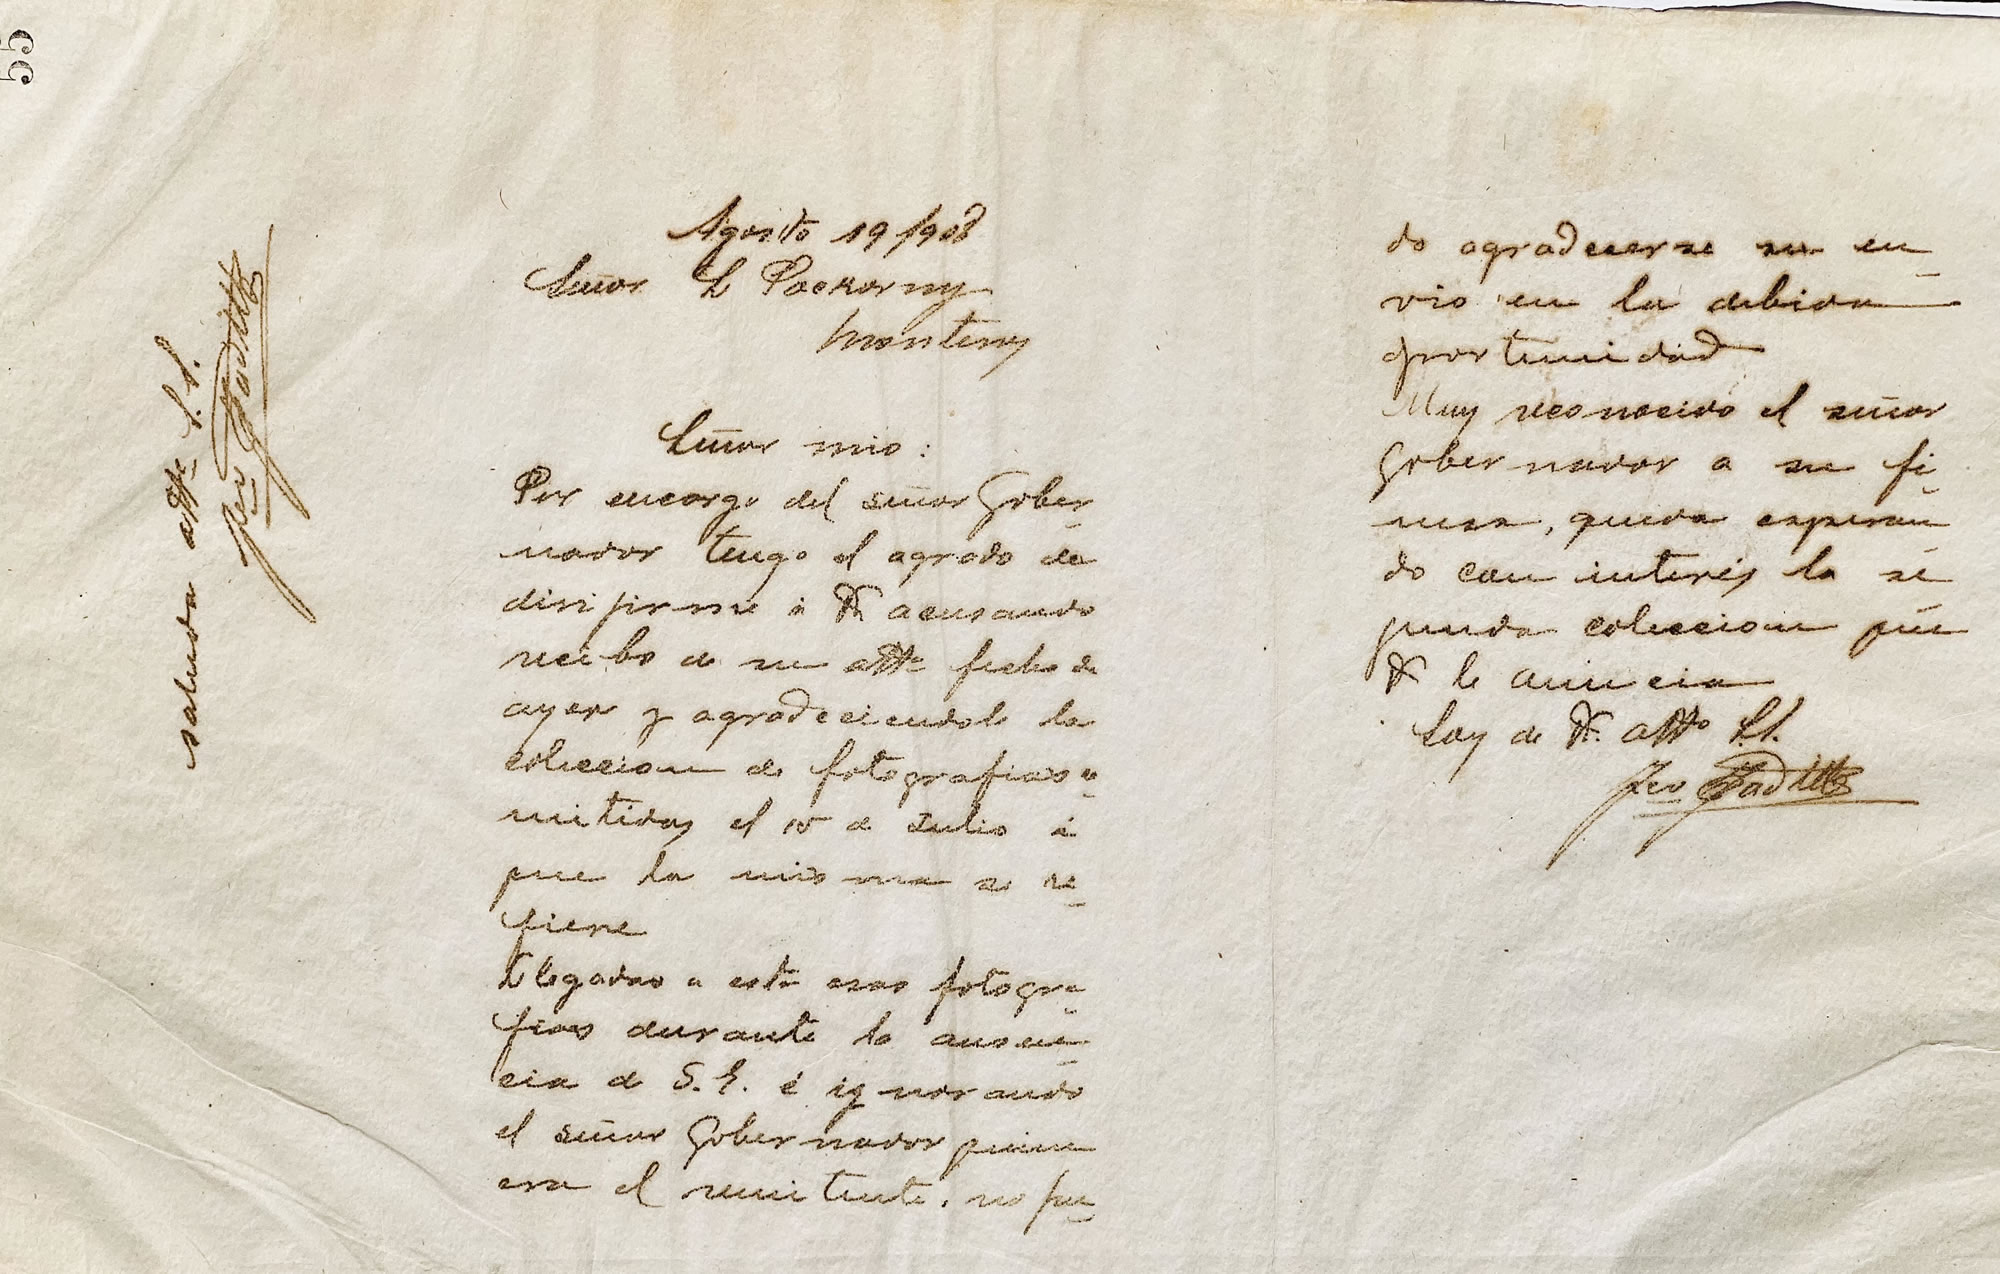 55
saluda atte S.S.
Fco Padilla
Agosto 19/908
Señor L Pockorny
Monterrey
Señor mio:
Por encargo del señor Gober-
nador tengo el agrado de
dirijirme á Vd acusando
recibo de su atte fecha de
ayer y agradeciendole la
coleccion de fotografias re-
mitidas el 15 de Julio á
que la misma se re-
fiere
Llegadas a esta esas fotogra-
fias durante la ausen-
cia de S. E. é ignorando
el señor Gobernador quien
era el remitente, no pu-
do agradecerse su en-
vio en la debida
oportunidad
Muy reconocido el señor
Gobernador a su fi-
neza, queda esperan-
do con interés la se-
gunda coleccion que
Vd le anuncia
Soy de Vd. atto S.S.
Fco Padilla